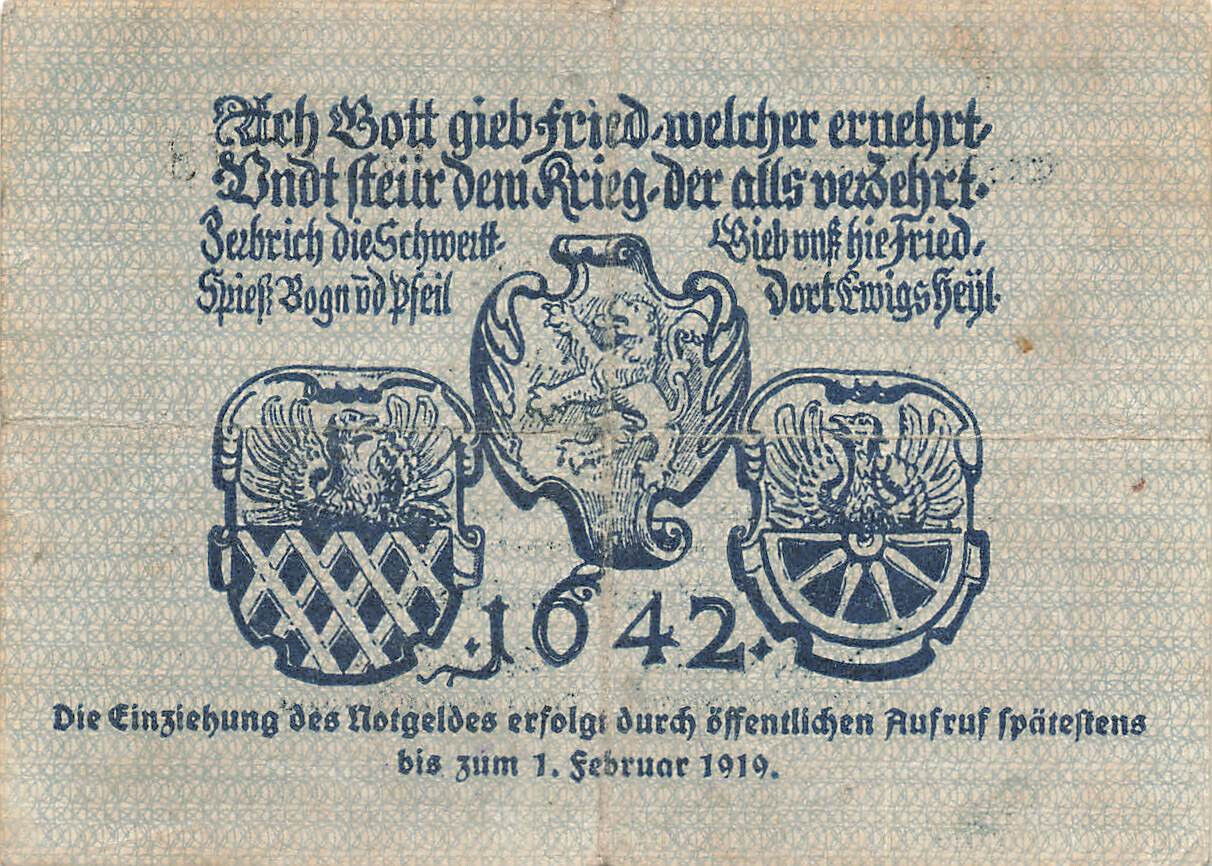 Ach Gott gieb Fried, welcher ernehrt,
Vndt steür dem Krieg, der alls verzehrt.
Zerbrich die Schwertt, Gieb vnß hie Fried,
Spieß Bogn v̄d Pfeil dort Ewigs Heÿl.
·1642·
Die Einziehung des Notgeldes erfolgt durch öffentlichen Aufruf spätestens
bis zum 1. Februar 1919.